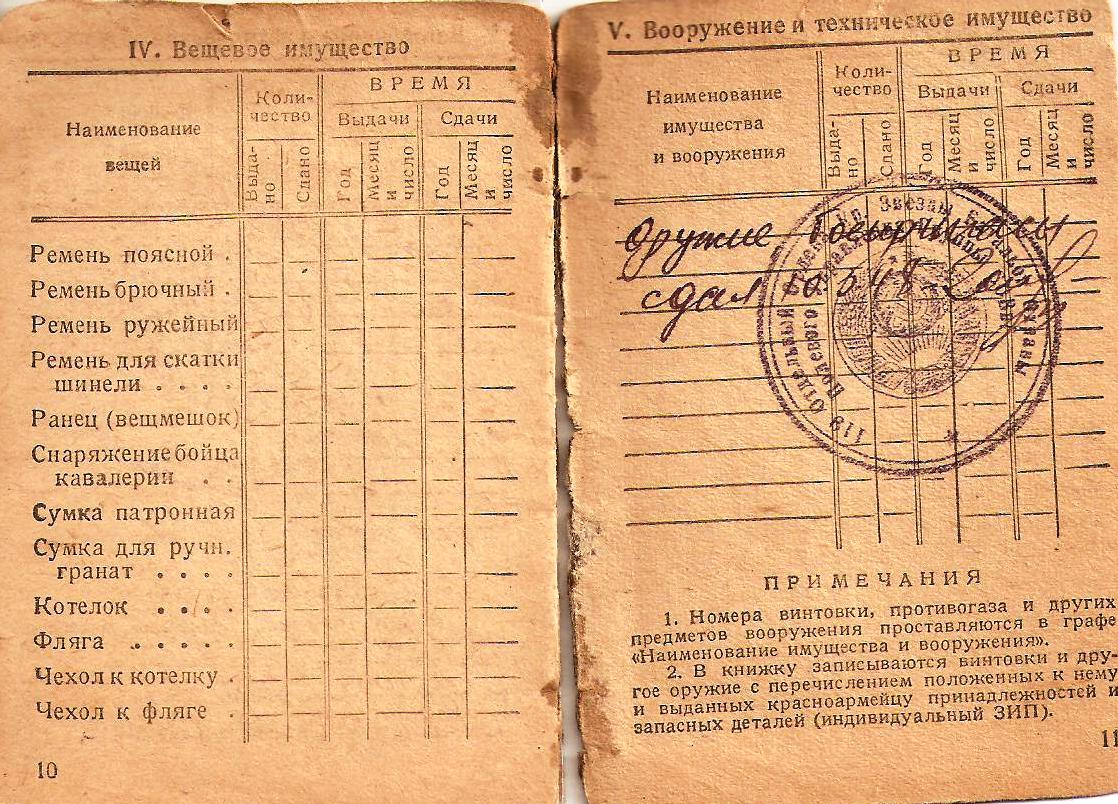 IV. Вещевое имущество
Наименование
вещей
Коли-
чество
ВРЕМЯ
Выдачи
Сдачи
Выда-
но
Сдано
Год
Месяц
и
число
Год
Месяц
и
число
Ремень поясной .
Ремень брючный .
Ремень ружейный
Ремень для скатки
шинели . . . .
Ранец (вещмешок)
Снаряжение бойца
кавалерии . .
Сумка патронная
Сумка для ручн.
гранат . . . .
Котелок . . . .
Фляга . . . . .
Чехол к котелку .
Чехол к фляге .
10
V. Вооружение и техническое имущество
Наименование
имущества
и вооружения
Коли-
чество
ВРЕМЯ
Выдачи
Сдачи
Выда-
но
Сдано
Год
Месяц
и
число
Год
Месяц
и
число
Оружие
сдал
118 Отдельный Кр. Звезды
Полевого
ПРИМЕЧАНИЯ
1. Номера винтовки, противогаза и других
предметов вооружения проставляются в графе
«Наименование имущества и вооружения».
2. В книжку записываются винтовки и дру-
гое оружие с перечислением положенных к нему
и выданных красноармейцу принадлежностей и
запасных деталей (индивидуальный ЗИП).
11